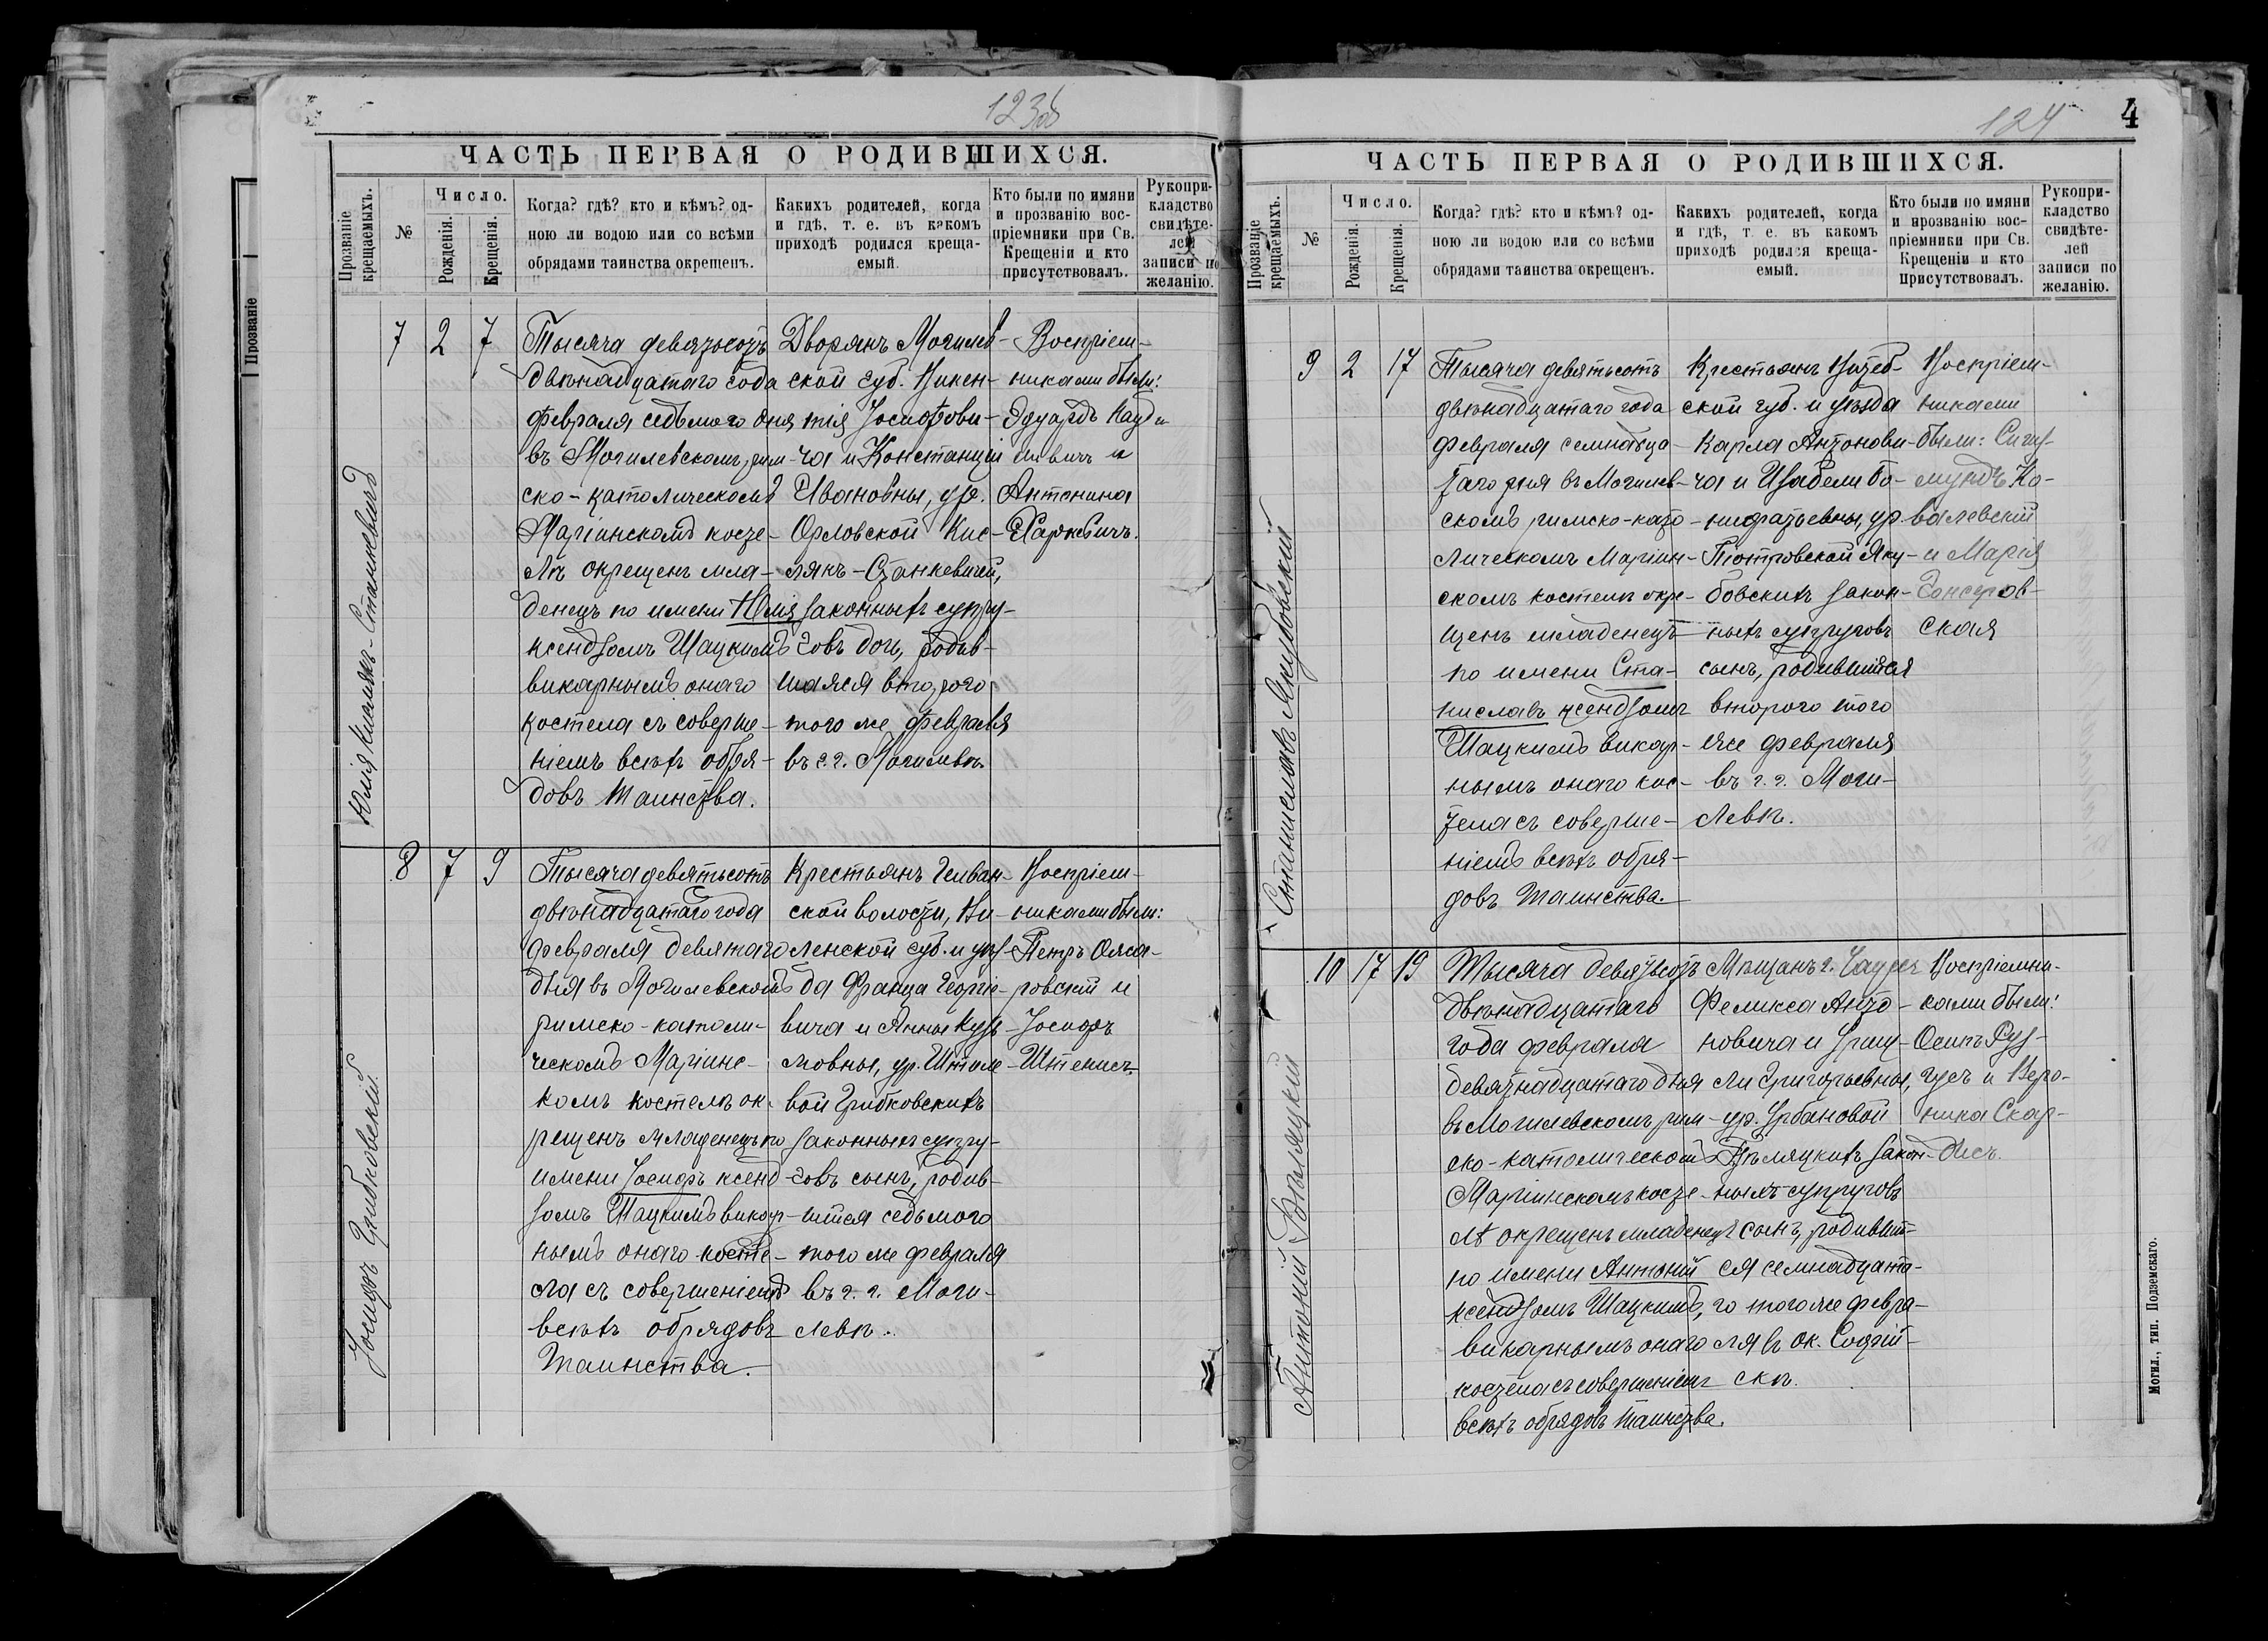 123об
ЧАСТЬ ПЕРВАЯ О РОДИВШИХСЯ.
Прозваніе крещаемыхъ.
№
Число.
Рожденія.
Крещенія.
Когда? гдѣ? кто и кѣмъ? од-
ною ли водою или со всѣми
обрядами таинства окрещенъ.
Какихъ родителей, когда
и гдѣ, т. е. въ какомъ
приходѣ родился креща-
емый.
Кто были по имяни
и прозванію вос-
пріемники при Св.
Крещеніи и кто
присутствовалъ.
Рукопри-
кладство
свидѣте-
лей
записи по
желанію.
Прозваніе
Юлія Кислякъ-Станкевичъ
7
2
7
Тысяча девятьсотъ
двѣнадцатаго года
февраля седьмого дня
въ Могилевскомъ рим-
ско-католическомъ
Маріинскомъ косте-
лѣ окрещенъ мла-
денецъ по имени Юлія
ксендзомъ Шацкимъ
викарнымъ онаго
костела съ соверше-
ніемъ всѣхъ обря-
довъ Таинства.
Дворянъ Могилев-
ской губ. Викен-
тія Іосифови-
ча и Констанціи
Ивановны, ур.
Орловской Кис-
лякъ-Станкевичей,
законныхъ супру-
говъ дочь, родив-
шаяся второго
того же февраля
въ г. г. Могилевѣ.
Воспріем-
никами были:
Эдуардъ
и
Антонина
Харкевичъ.
Іосифъ Грибковскій.
8
7
9
Тысяча девятьсотъ
двѣнадцатаго года
февраля девятаго
дня въ Могилевскомъ
римско-католи-
ческомъ Маріинс-
комъ костелѣ ок-
рещенъ младенецъ по
имени Іосифъ ксенд-
зомъ Шацкимъ викар-
нымъ онаго косте-
ла съ совершеніемъ
всѣхъ обрядовъ
Таинства.
Крестьянъ Гелван-
ской волости, Ви-
ленской губ. и уѣз-
да Франца Георгіе-
вича и Анны Кузь-
мовны, ур.
Грибковскихъ
законныхъ супру-
говъ сынъ, родив-
шійся седьмого
того же февраля
въ г. г. Моги-
левѣ.
Воспріем-
никами были:
Петръ
и
Іосифъ
124
4
ЧАСТЬ ПЕРВАЯ О РОДИВШИХСЯ.
Прозваніе крещаемыхъ.
№
Число.
Рожденія.
Крещенія.
Когда? гдѣ? кто и кѣмъ? од-
ною ли водою или со всѣми
обрядами таинства окрещенъ.
Какихъ родителей, когда
и гдѣ, т. е. въ какомъ
приходѣ родился креща-
емый.
Кто были по имяни
и прозванію вос-
пріемники при Св.
Крещеніи и кто
присутствовалъ.
Рукопри-
кладство
свидѣте-
лей
записи по
желанію.
Станиславъ Якубовскій
9
2
17
Тысяча девятьсотъ
двѣнадцатаго года
февраля семнадца-
таго дня въ Могилев-
скомъ римско-като-
лическомъ Маріин-
скомъ костелѣ окре-
щенъ младенецъ
по имени Ста-
ниславъ ксендзомъ
Шацкимъ викар-
нымъ онаго кос-
тела съ соверше-
ніемъ всѣхъ обря-
довъ Таинства.
Крестьянъ Витеб-
ской губ. и уѣзда
Карла Антонови-
ча и Изабели Бо-
нифатьевны, ур.
Піотровской Яку-
бовскихъ закон-
ныхъ супруговъ
сынъ, родившійся
второго того
же февраля
въ г. г. Моги-
левѣ.
Воспріем-
никами
были: Сигиз-
мундъ Ко-
валевскій
и Марія
ская
Антоній Бѣляцкій
10
17
19
Тысяча девятьсотъ
двѣнадцатаго
года февраля
девятнадцатаго дня
въ Могилевскомъ рим-
ско-католическомъ
Маріинскомъ косте-
лѣ окрещенъ младенецъ
по имени Антоній
ксендзомъ Шацкимъ,
викарнымъ онаго
костела съ совершеніемъ
всѣхъ обрядовъ таинства.
Мѣщанъ г. Чаусъ
Феликса Анто-
новича и Уршу-
ли Григорьевны,
ур. Урбановой
Бѣляцкихъ закон-
ныхъ супруговъ
сынъ, родивші-
ся семнадцата-
го того же февра-
ля въ ок. Софій-
скѣ.
Воспріемни-
ками были:
Осипъ
и Веро-
ника
Могил., тип. Подземскаго.